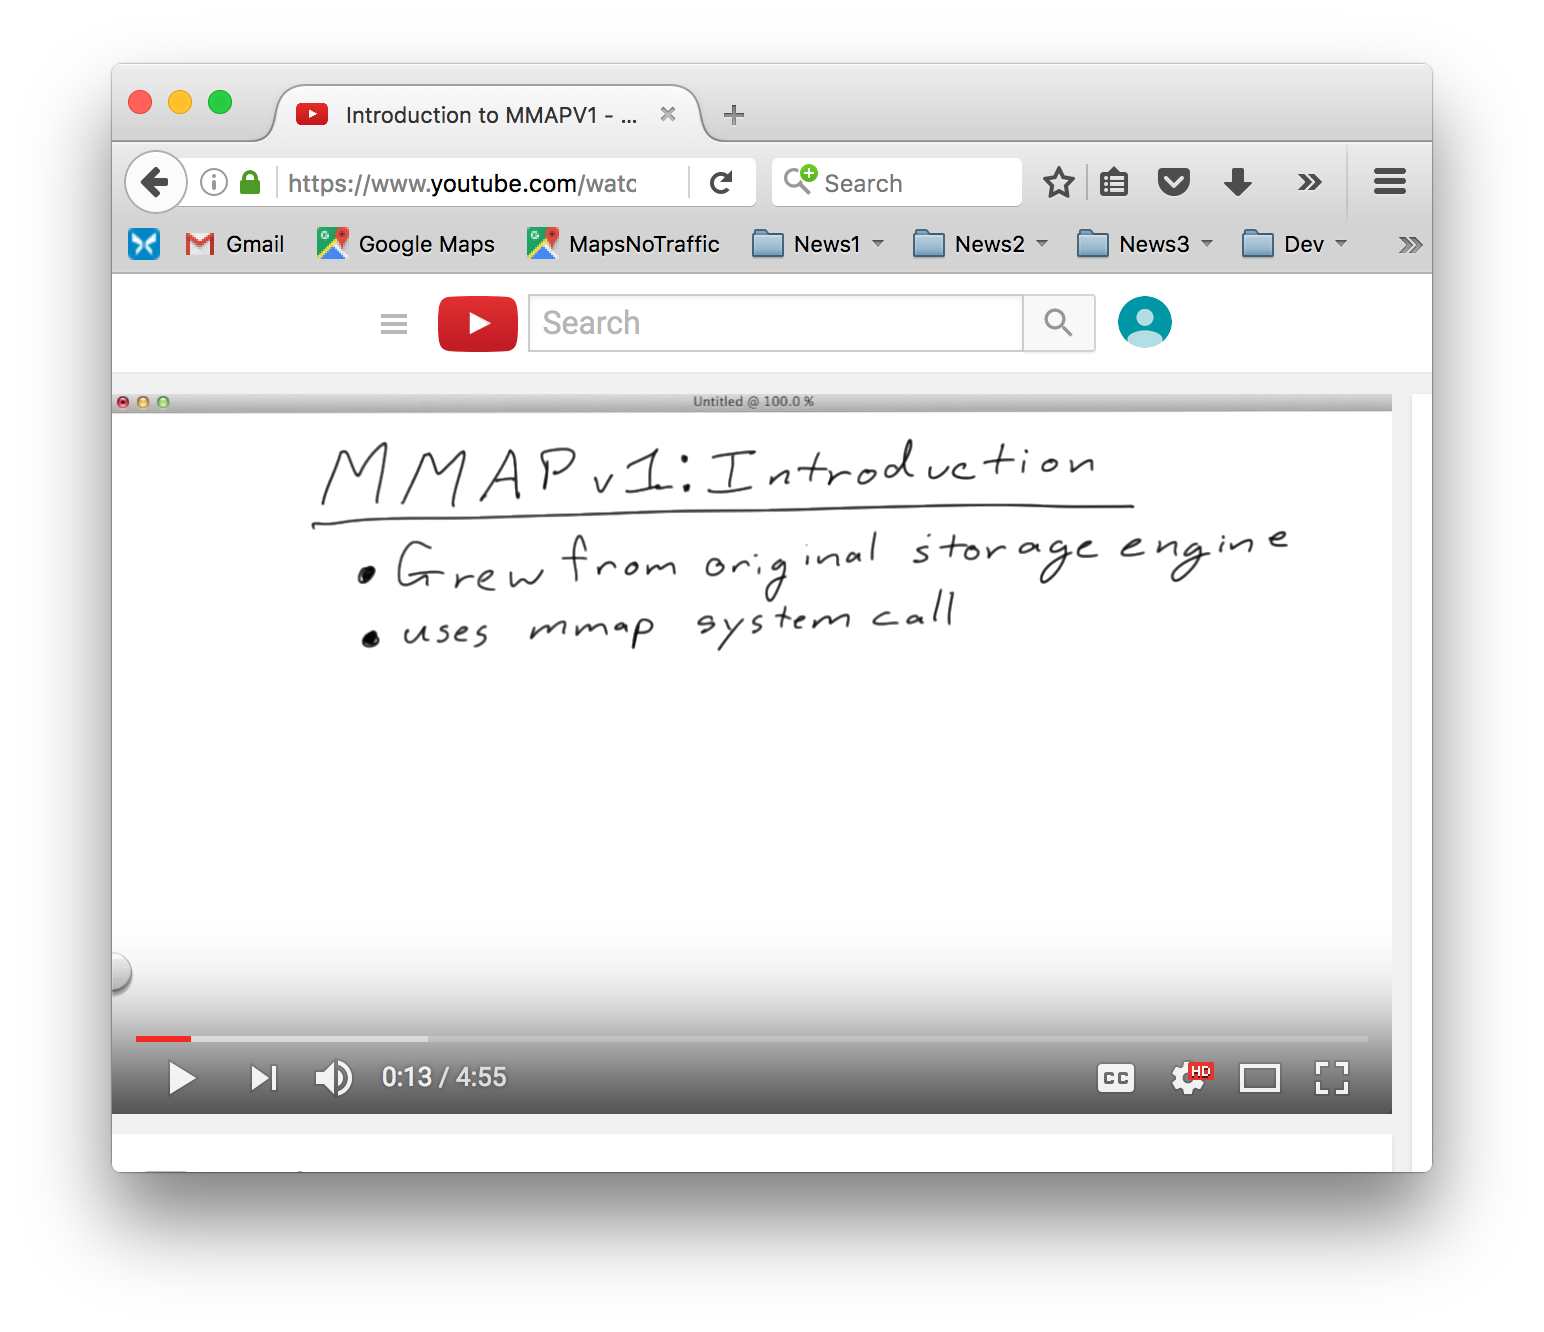 Introduction to MMAPV1 - ...
https://www.youtube.com/watc
Search
Gmail Google Maps MapsNoTraffic News1 News2 News3 Dev
Search
Untitled @ 100.0 %
MMAPv1: Introduction
• Grew from original storage engine
• uses mmap system call
0:13 / 4:55
CC
HD